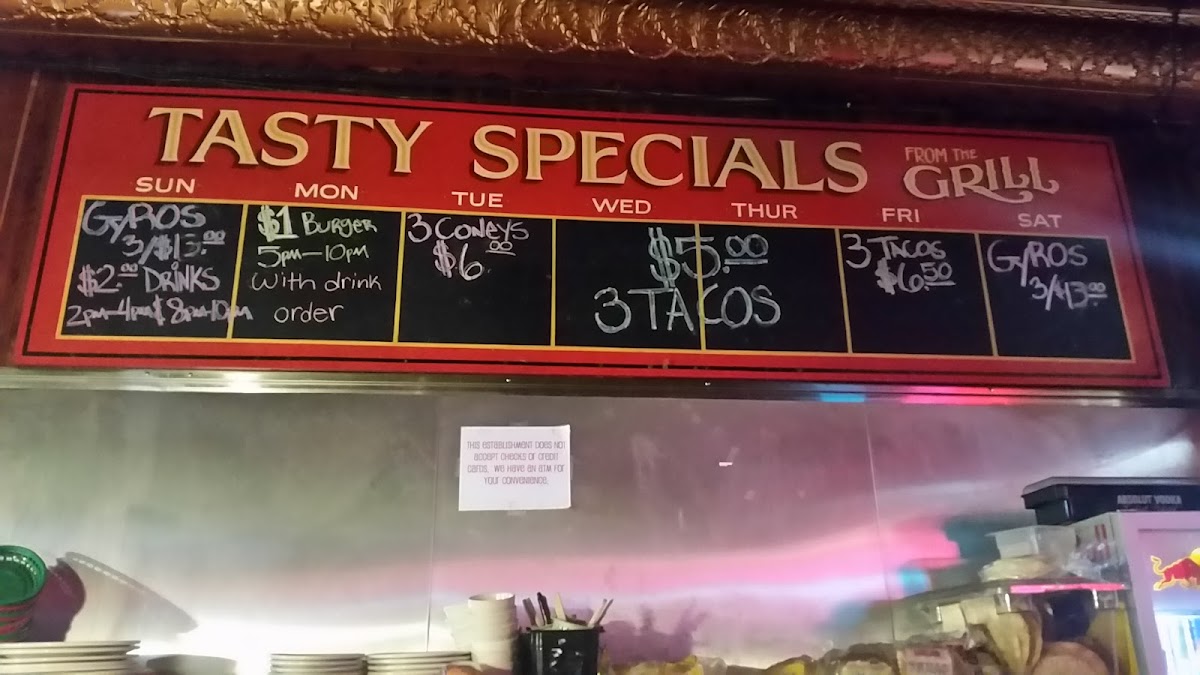 TASTY SPECIALS FROM THE GRILL
SUN MON TUE WED THUR FRI SAT
GYROS
3/$13.00
$2.00 DRINKS
2pm-4pm & 8pm-10pm
$1 BURGER
5pm-10pm
with drink
order
3 CONEYS
$6.00
$5.00
3 TACOS
3 TACOS
$6.50
GYROS
3/$13.00
THIS ESTABLISHMENT DOES NOT
ACCEPT CHECKS OR CREDIT
CARDS. WE HAVE AN ATM FOR
YOUR CONVENIENCE.
ABSOLUT VODKA